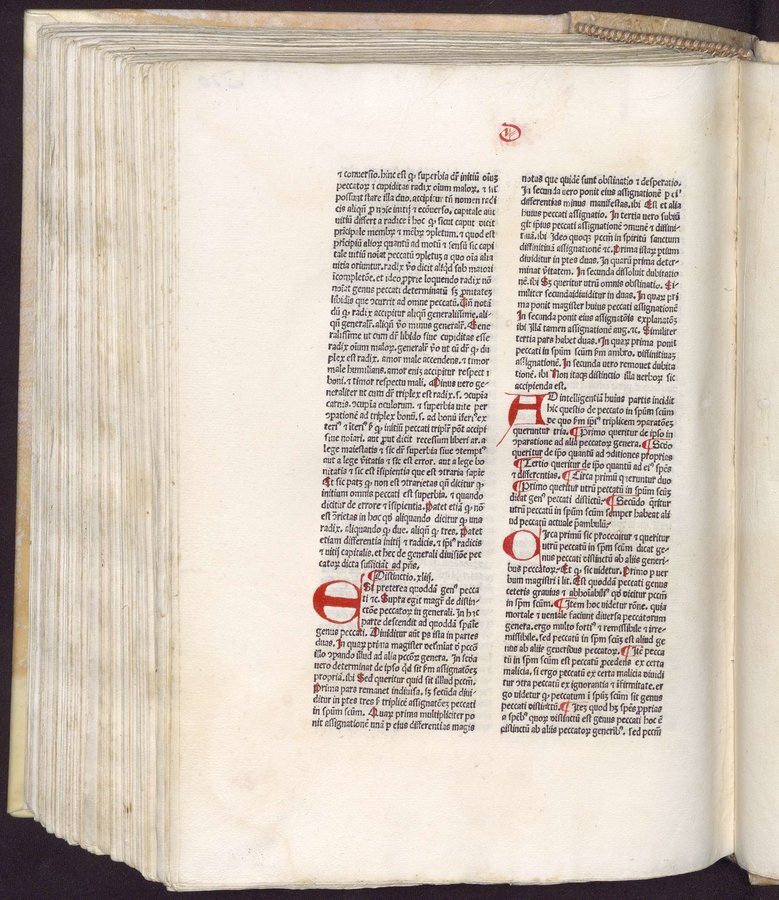 ⁊ conuersio. hinc est ꝙ superbia dr̄ initiū oīuꝫ
peccatoꝝ ⁊ cupiditas radix oium maloꝝ. ⁊ sic
possunt stare illa duo. accipitur tn̄ nomen radi
cis aliqñ ꝓ noīe initij ⁊ ecōuerso. capitale aūt
uitiū differt a radice ī hoc ꝙ sicut caput dicit
prīcipale membꝝ ⁊ mēbꝝ ꝯpletum. ⁊ quod est
prīcipiū alioꝝ quantū ad motū ⁊ sensū sic capi
tale uitiū noīat peccatū ꝯpletuꝫ a quo oīa alia
uitia oriuntur. radix ṽo dicit aliqd sub maiori
īcompletōe. et ideo ꝓprie loquendo radix nō
noīat genus peccati determinatū sꝫ ꝓnitateꝫ
libidis que ꝯcurrit ad omne peccatū. Tn̄ notā
dū ꝙ radix accipitur aliqñ generalissime. ali-
qñ generalr̄. aliqñ ṽo minus generalr̄. Gene
ralissime ut cum dr̄ libido siue cupiditas esse
radix oīum maloꝝ. generalr̄ ṽo ut cū dr̄ ꝙ du
plex est radix. amor male accendens. ⁊ timor
male humilians. amor eniꝫ accipitur respectu
boni. ⁊ timor respectu mali. Minus uero ge-
neraliter ut cum dr̄ triplex est radix. s. ꝯcupīa
carnis. ꝯcupīa oculorum. ⁊ superbia uite per
ꝯpationē ad triplex bonū. s. ad bonū īferiꝰ ex
teriꝰ ⁊ īteriꝰ
siue notari. aut ꝓut dicit recessum liberi ar. a
lege maiestatis ⁊ sic dr̄ superbia siue ꝯtempꝰ
aut a lege ṽitatis ⁊ sic est error. aut a lege bo
nitatis ⁊ sic est īsipientia que est ꝯtraria sapīe
Et sic patꝫ ꝙ non est ꝯtrarietas qñ dicitur ꝙ
initium omnis peccati est superbia. ⁊ quando
dicitur de errore ⁊ īsipientia. Patet etiā ꝙ nō
est ꝯrietas in hoc ꝙ aliquando dicitur ꝙ una
radix. aliquando ꝙ due. aliqñ ꝙ tres. Patet
etiam differentia initij ⁊ radicis. ⁊ ipīꝰ radicis
⁊ uitij capitalis. et hec de generali diuisiōe pec
catoꝝ dicta sufficiāt ad pn̄s.
¶ Distinctio. xliij.
ESt preterea quoddā genꝰ pecca
ti ⁊c. Supra egit magr̄ de distin
ctōe peccatoꝝ in generali. In hac
parte descendit ad quoddā sp̄ale
genus peccati. Diuiditur aūt ps ista in partes
duas. In quaꝝ prima magister
illo ꝯpando illud ad alia peccōꝝ genera. In secūda
uero determinat de ipso qd sit
propriā. ibi Sed queritur quid sit illud peccm̄.
Prima pars remanet indiuisa. sꝫ secūda diui
ditur in ptes tres
in spūm scūm. Quaꝝ prima multipliciter po
nit assignationē unā p eius differentias magis
notas que quidē sunt obstinatio ⁊ desperatio.
In secunda uero ponit eius assignationē p eiꝰ
differentias minus manifestas. ibi Est et alia
huius peccati assignatio. In tertia uero subiū
git ipīus peccati assignationē ꝯmunē ⁊ diffini-
tiuā. ibi Ideo quoqꝫ peccm̄ in spiritū sanctum
diffinitiuā assignationē ⁊c. Prima istaꝝ ptium
diuiditur in ptes duas. In quaꝝ prima deter-
minat ṽitatem. In secunda dissoluit dubitatio
nē. ibi Sꝫ queritur utrū omnis obstinatio. Si-
militer secunda diuiditur in duas. In quaꝝ pri
ma ponit magister huius peccati assignationē
In secunda ponit eius assignatōis explanatōꝫ
ibi Illā tamen assignationē aug. ⁊c. Similiter
tertia pars habet duas. In quaꝝ prima ponit
peccati in spūm scūm
assignationē. In secunda uero remouet dubita
tionē. ibi Non itaqꝫ distinctio illa verboꝝ sic
accipienda est.
AD intelligentiā huius partis incidit
hic questio de peccato in spūm scūm
de quo
queruntur tria. ¶ Primo queritur de ipso in
ꝯparatione ad alia peccatoꝝ genera. ¶ Secūdo
queritur de ipō quantū ad ꝯditiones proprias
¶ Tertio queritur de ipō quantū ad eiꝰ sp̄es
⁊ differentias. ¶ Circa primū queruntur duo
¶ Primo queritur utrū peccatū in spūm scūꝫ
dicat genꝰ peccati distictū. ¶ Secūdo qritur
utrū peccatū in spūm scūm semper habeat ali
ud peccatū actuale
CIrca primū sic proceditur ⁊ queritur
utrū peccatū in spūm scūm dicat ge-
nus peccati distinctū ab aliis generi
bus peccatoꝝ. Et ꝙ sic videtur. Primo p ver
bum magistri ī lit. Est quoddā peccati genus
ceteris grauius ⁊ abhoīabiliꝰ qd dicitur peccm̄
in spūm scūm. ¶ Item hoc videtur rōne. quia
mortale ⁊ ueniale faciunt diuersa peccatorum
genera. ergo multo fortiꝰ ⁊ remissibile ⁊ irre-
missibile. sed peccatū in spūm scūꝫ est aliud ge
nus ab aliis generibus peccatoꝝ. ¶ Itē pecca
tū in spūm scūm est peccatū ꝓcedens ex certa
malicia. si ergo peccatū ex certa malicia diuidi
tur ꝯtra peccatū ex ignorantia ⁊ īfirmitate. er
go videtur ꝙ peccatum ī spūꝫ scūm sit genus
peccati distinctū. ¶ Iteꝫ quod hꝫ sp̄es ꝓprias
a sp̄ebꝰ quoꝝ distinctū est genus peccati hoc ē
distinctū ab aliis peccatoꝝ generibꝰ. sed peccm̄